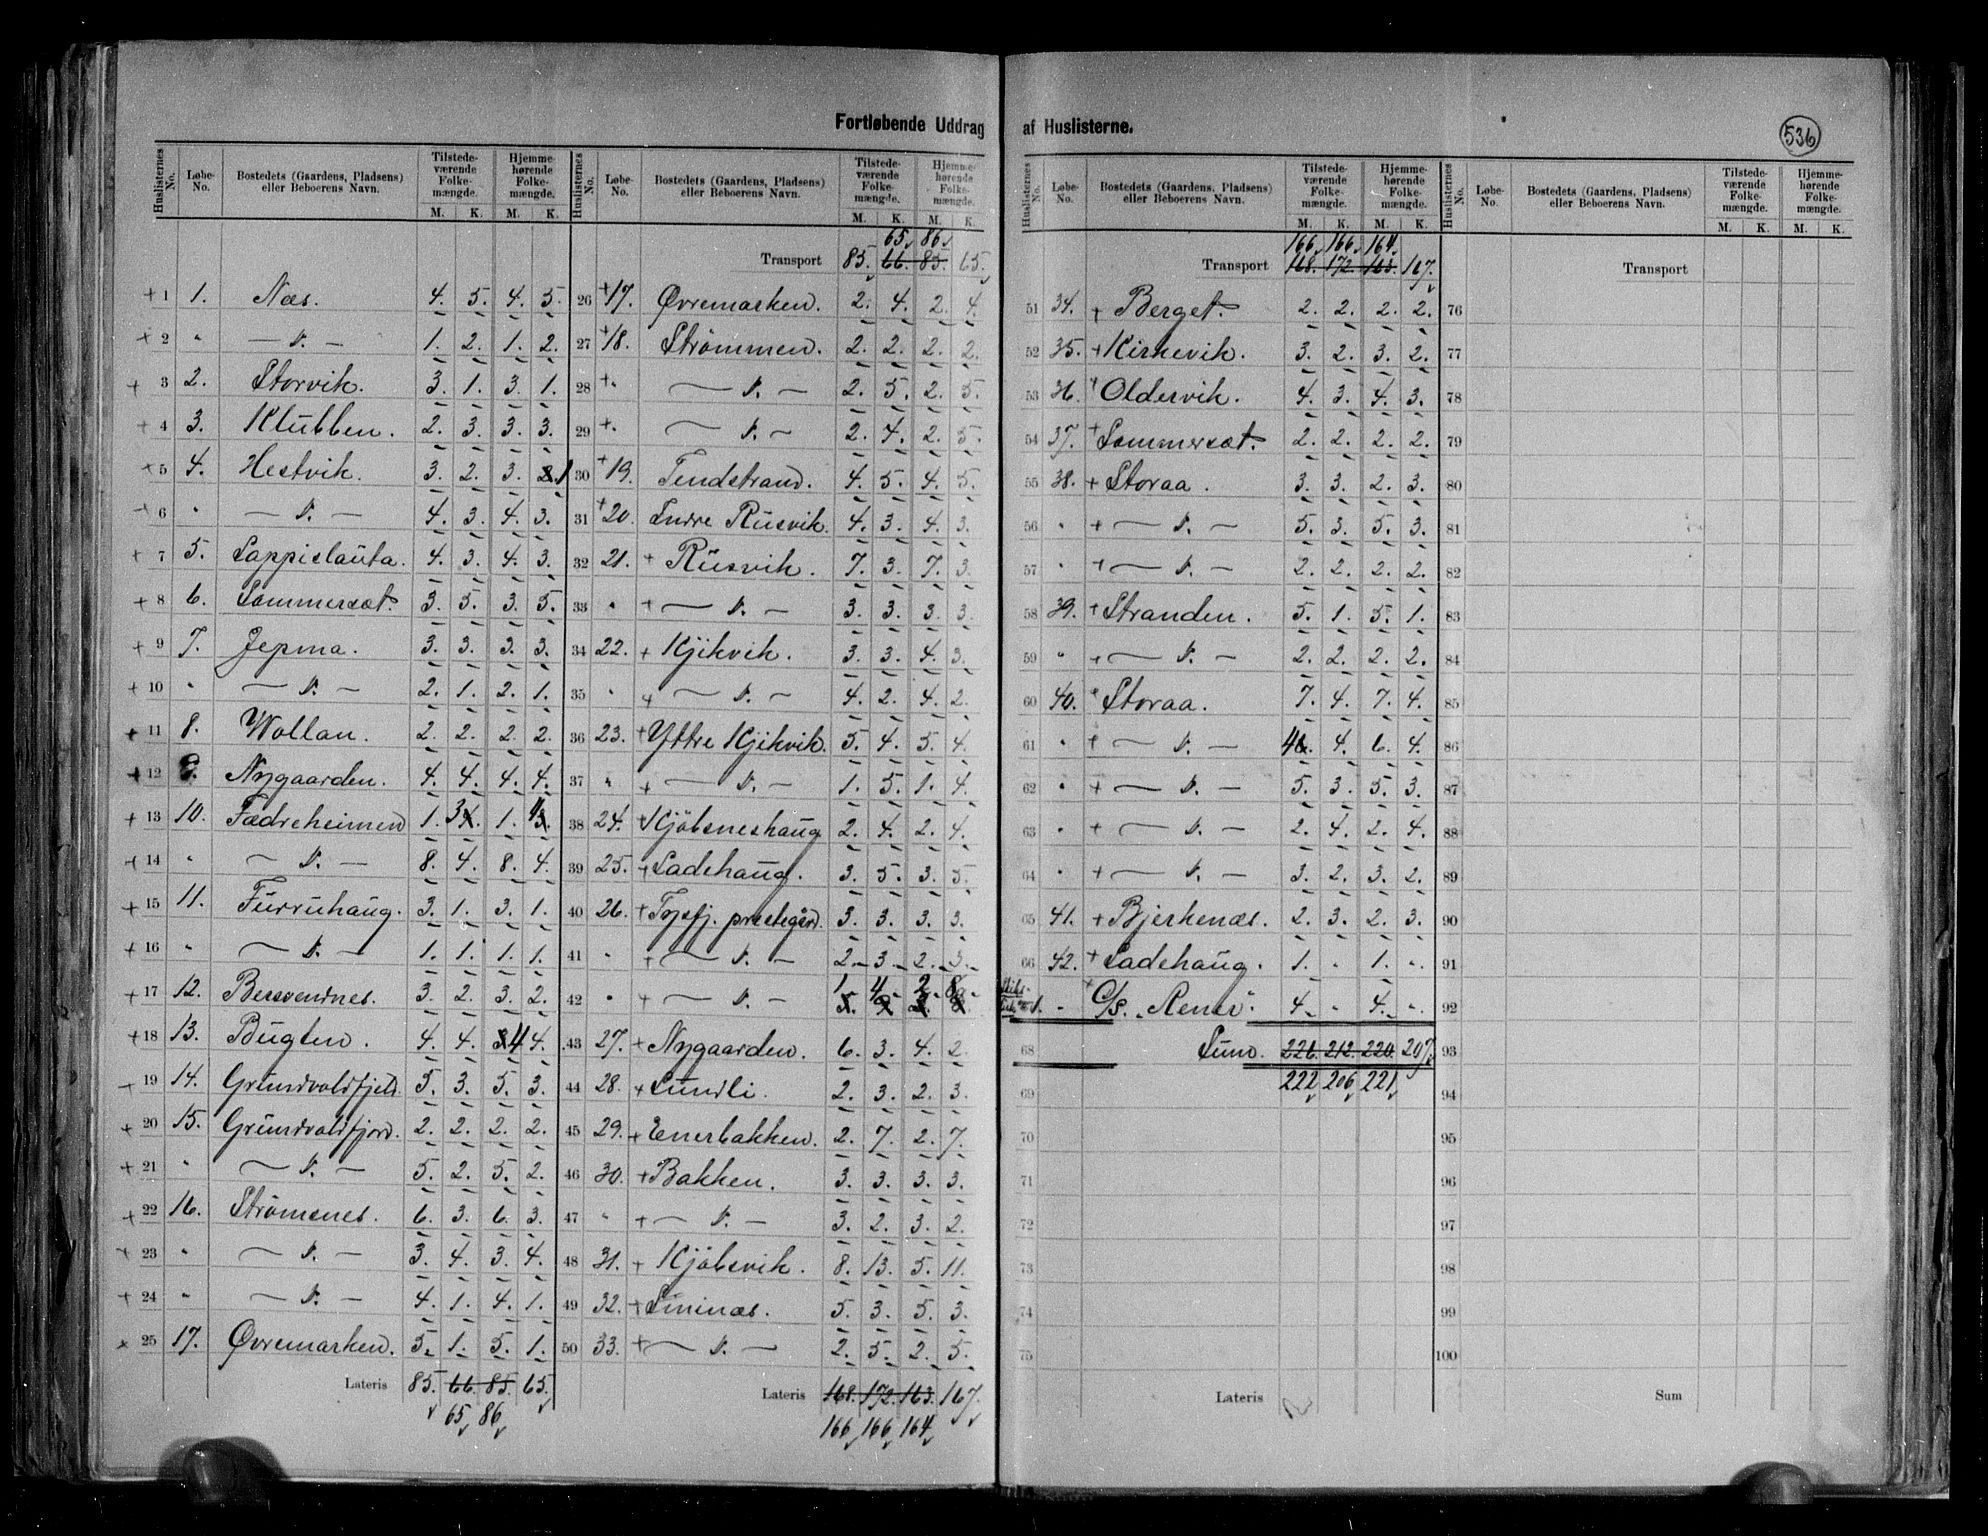 Fortløbende Uddrag af Huslisterne.
536
Huslisternes No. Løbe-No. Bostedets (Gaardens, Pladsens) eller Beboerens Navn. Tilstedeværende Folkemængde. M. K. Hjemmehørende Folkemængde. M. K.
+ 1 1. Næs. 4. 5. 4. 5.
+ 2 " — „ — 1. 2. 1. 2.
+ 3 2. Storvik. 3. 1. 3. 1.
+ 4 3. Klubben. 2. 3. 3. 3.
+ 5 4. Hestvik. 3. 2. 3. 2. 1
+ 6 " — „ — 4. 3. 4. 3.
+ 7 5. Lappislauta. 4. 3. 4. 3.
+ 8 6. Sommersæt. 3. 5. 3. 5.
+ 9 7. Jepma. 3. 3. 3. 3.
+ 10 " — „ — 2. 1. 2. 1.
+ 11 8. Wollan. 2. 2. 2. 2.
+ 12 9. Nygaarden. 4. 4. 4. 4.
+ 13 10. Fædreheimen 1. 3 4. 1. 4 3.
+ 14 " — „ — 8. 4. 8. 4.
+ 15 11. Furruhaug. 3. 1. 3. 1.
+ 16 " — „ — 1. 1. 1. 1.
+ 17 12. Bersvendnes. 3. 2. 3. 2.
+ 18 13. Bugten. 4. 4. 3 4 4.
19 14. Grundvoldfjeld. 5. 3. 5. 3.
+ 20 15. Grundvoldfjord. 2. 2. 2. 2.
+ 21 " — „ — 5. 2. 5. 2.
+ 22 16. Strømsnes. 6. 3. 6. 3.
+ 23 " — „ — 3. 4. 3. 4.
+ 24 " — „ — 4. 1. 4. 1.
x 25 17. Øvremarken. 5. 1. 5. 1.
Lateris 85. 66. 85. 65.
65 86
Huslisternes No. Løbe-No. Bostedets (Gaardens, Pladsens) eller Beboerens Navn. Tilstedeværende Folkemængde. M. K. Hjemmehørende Folkemængde. M. K.
65 86
Transport 85. 66. 85. 65.
26 +17. Øvremarken. 2. 4. 2. 4.
27 +18. Strømmen. 2. 2. 2. 2.
28 +" — „ — 2. 5. 2. 5.
29 +" — „ — 2. 4. 2. 5.
30 +19. Tendstrand. 4. 5. 4. 5.
31 +20. Indre Rusvik. 4. 3. 4. 3.
32 21. + Rusvik. 7. 3. 7. 3.
33 " + — „ — 3. 3. 3. 3.
34 22. + Kjikvik. 3. 3. 4. 3.
35 " + — „ — 4. 2. 4. 2.
36 23. + Yttre Kjikvik. 5. 4. 5. 4.
37 " + — „ — 1. 5. 1. 4.
38 24. + Kjöbsneshaug 2. 4. 2. 4.
39 25. + Ladehaug. 3. 5. 3. 5.
40 26. + Tysfj. prestegård. 3. 3. 3. 3.
41 " + — „ — 2. 3. 2. 3.
1. 4. 2. 8.
42 " + — „ —
43 27. + Nygaarden. 6. 3. 4. 2.
44 28. + Lundli. 2. 3. 2. 3.
45 29. + Enerbakken. 2. 7. 2. 7.
46 30. + Bakken. 3. 3. 3. 3.
47 " + — „ — 3. 2. 3. 2.
48 31. + Kjöbsvik. 8. 13. 5. 11.
49 32. + Lininæs. 5. 3. 5. 3.
50 33. + — „ — 2. 5. 2. 5.
Lateris 168. 172. 163. 167.
166 166 164
Huslisternes No. Løbe-No. Bostedets (Gaardens, Pladsens) eller Beboerens Navn. Tilstedeværende Folkemængde. M. K. Hjemmehørende Folkemængde. M. K.
166 166 164
Transport 168. 172. 163. 167.
51 34. + Berget. 2. 2. 2. 2.
52 35. + Kirkevik. 3. 2. 3. 2.
53 36. + Oldervik. 4. 3. 4. 3.
54 37. + Sommersæt. 2. 2. 2. 2.
55 38. + Storaa. 3. 3. 2. 3.
56 " + — „ — 5. 3. 5. 3.
57 " + — „ — 2. 2. 2. 2.
58 39. + Stranden. 5. 1. 5. 1.
59 " + — „ — 2. 2. 2. 2.
60 40. + Storaa. 7. 4. 7. 4.
61 " + — „ — 4 6. 4. 6. 4.
62 " + — „ — 5. 3. 5. 3.
63 " + — „ — 2. 4. 2. 4.
64 " + — „ — 3. 2. 3. 2.
65 41. + Bjerkenæs. 2. 3. 2. 3.
66 42. + Ladehaug. 1. " 1. "
+ C/s. „Renen". 4. " 4. "
68 Sum. 226. 212. 220. 207.
69 222 206 221
70
71
72
73
74
75
Lateris
Huslisternes No. Løbe-No. Bostedets (Gaardens, Pladsens) eller Beboerens Navn. Tilstedeværende Folkemængde. M. K. Hjemmehørende Folkemængde. M. K.
Transport
76
77
78
79
80
81
82
83
84
85
86
87
88
89
90
91
92
93
94
95
96
97
98
99
100
Sum